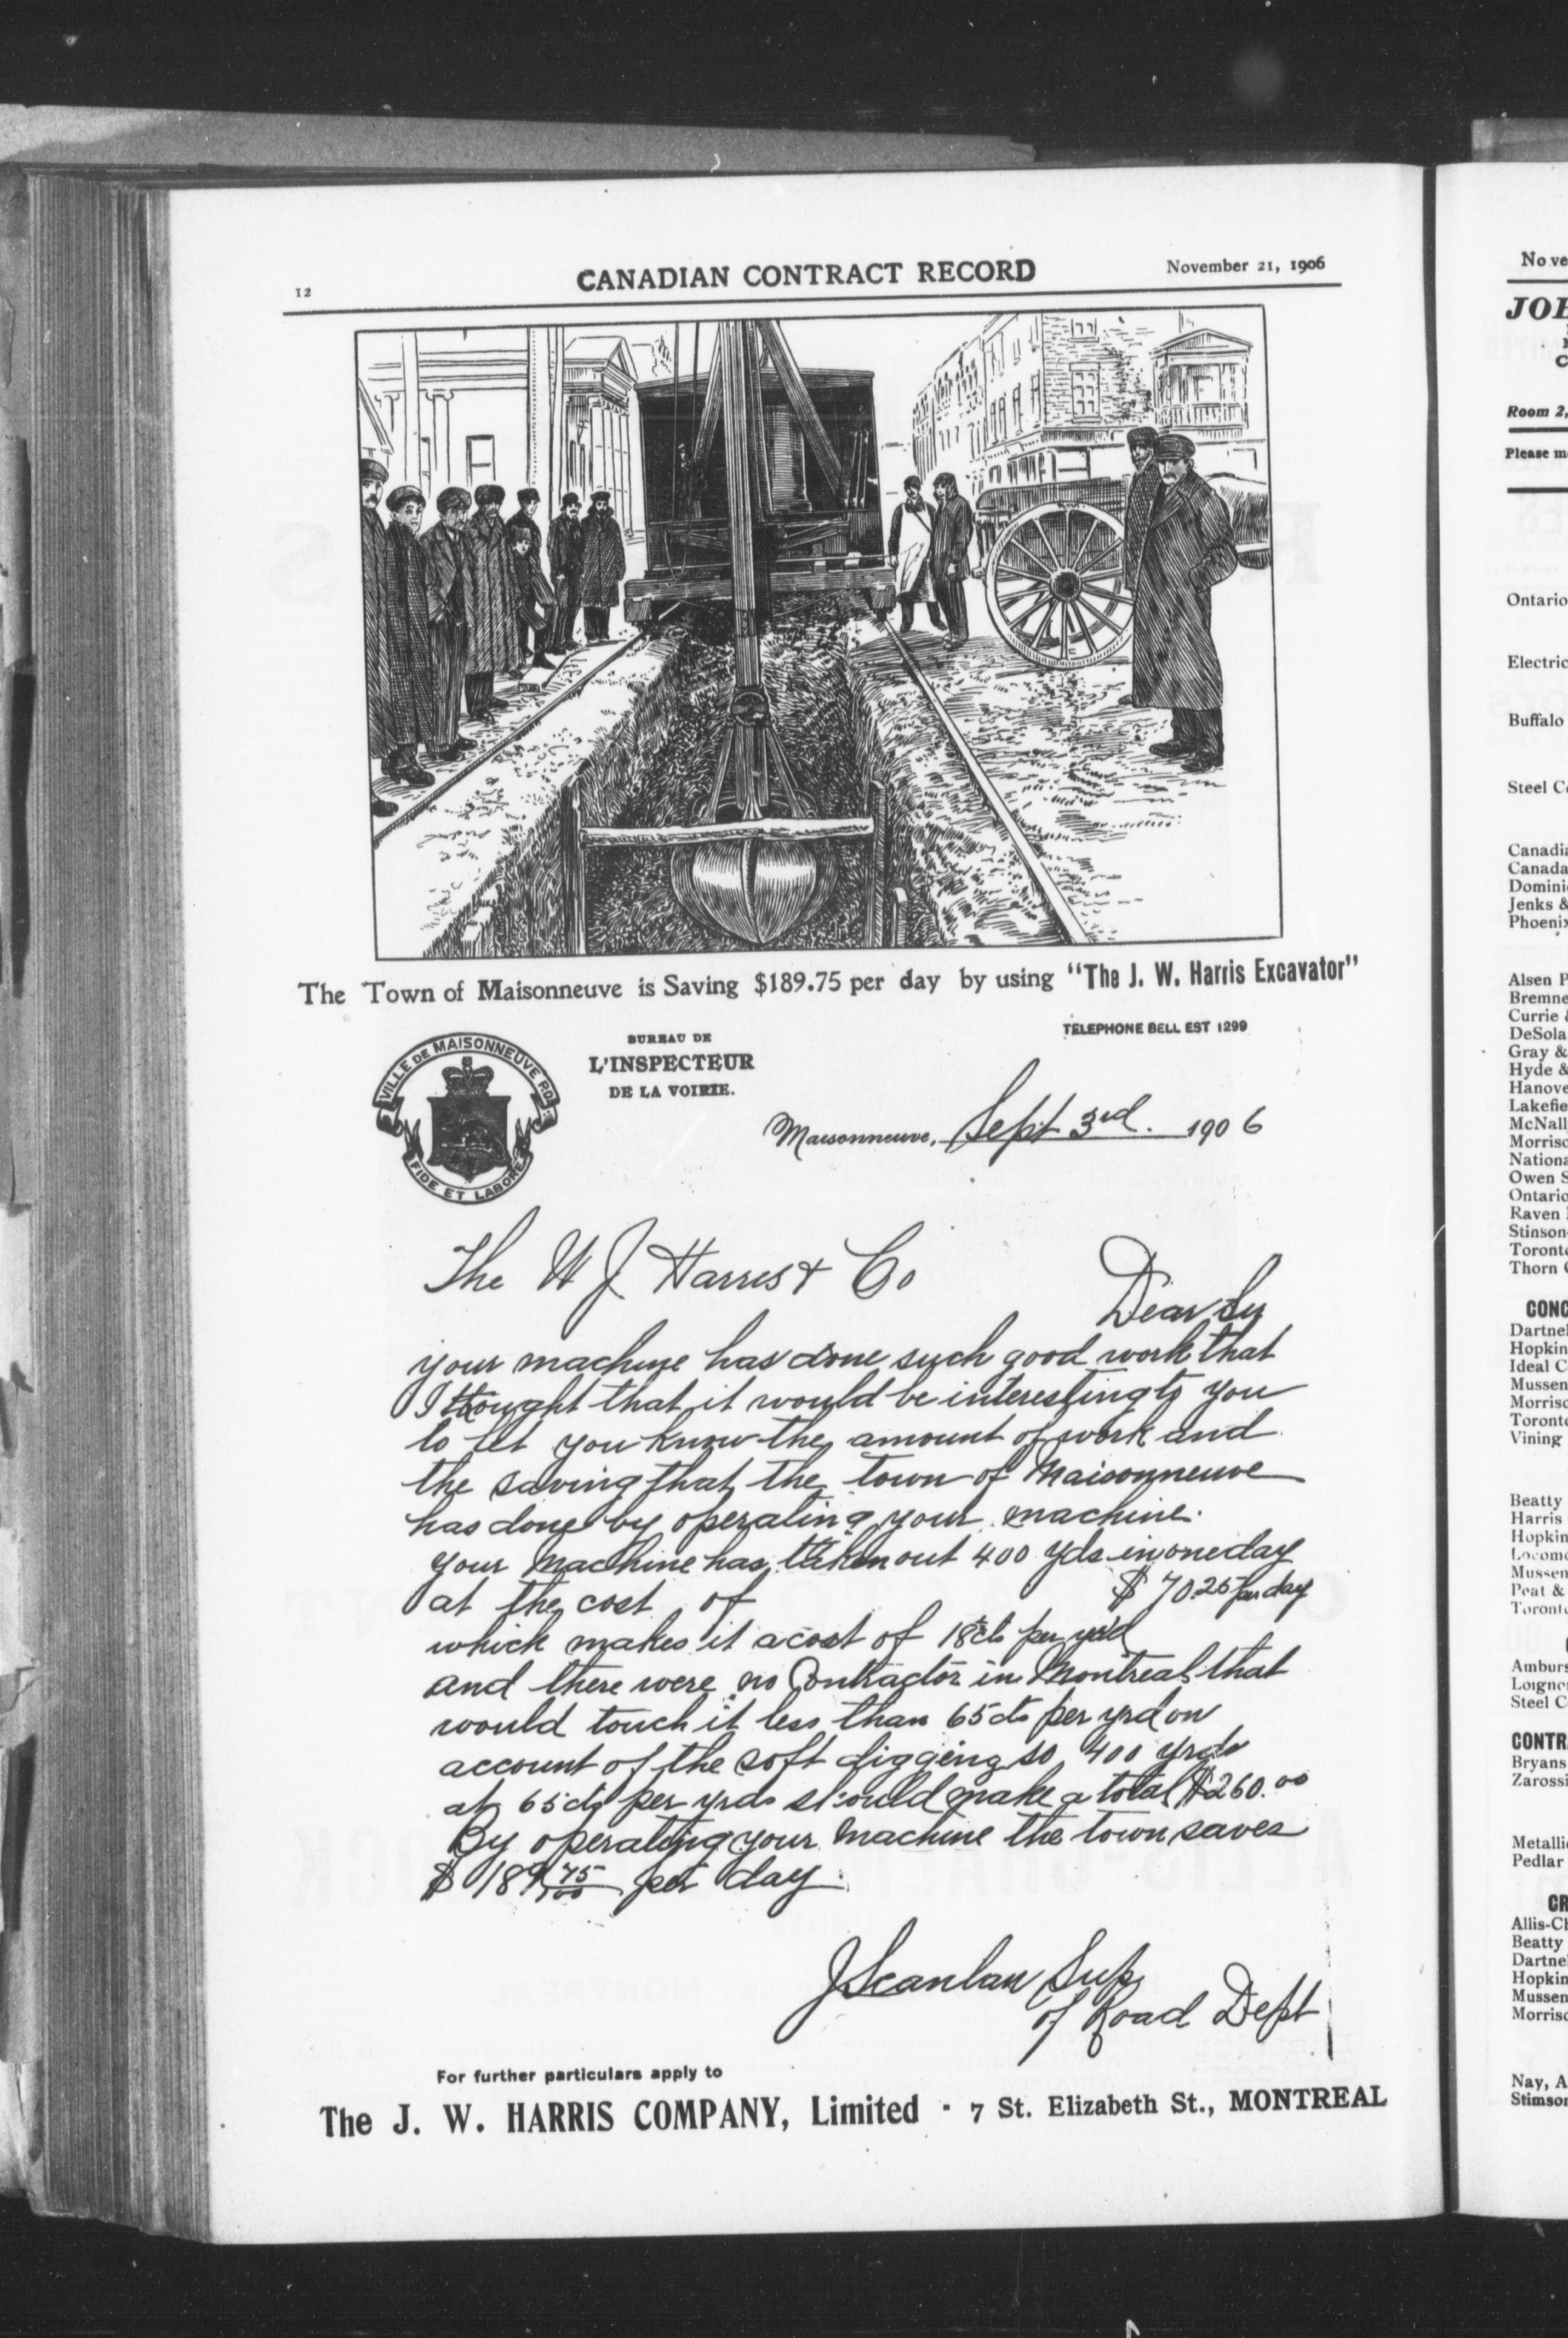 12
CANADIAN CONTRACT RECORD
November 21, 1906
The Town of Maisonneuve is Saving $189.75 per day by using "The J. W. Harris Excavator"
VILLE DE MAISONNEUVE P.Q.
FIDE ET LABORE
BUREAU DE
L'INSPECTEUR
DE LA VOIRIE.
TELEPHONE BELL EST 1299
Maisonneuve, Sept 3rd. 1906
The W J Harris & Co
Dear Sir
your machine has done such good work that
I thought that it would be interesting to you
to let you know the amount of work and
the saving that the town of Maisonneuve
has done by operating your machine.
your Machine has taken out 400 yds in one day
at the cost of $70.25 per day
which makes it a cost of 18 cts per yrd
and there were no Contractor in Montreal that
would touch it less than 65 cts per yrd on
account of the soft digging so 400 yrds
at 65 cts per yrds should make a total $260.00
By operating your Machine the town saves
$189 75/100 per day.
J Scanlan Sup
of Road Dept
For further particulars apply to
The J. W. HARRIS COMPANY, Limited - 7 St. Elizabeth St., MONTREAL
Nove
JOH
C
Room 2,
Please m
Ontario
Electric
Buffalo
Steel C
Canadia
Canada
Domini
Jenks &
Phoenix
Alsen P
Bremne
Currie &
DeSola
Gray &
Hyde &
Hanove
Lakefie
McNall
Morriso
Nationa
Owen S
Ontario
Raven
Stinson
Toronto
Thorn C
CONC
Dartnel
Hopkin
Ideal C
Mussen
Morriso
Toronto
Vining
Beatty
Harris
Hopkin
Locomo
Mussen
Peat &
Toronto
Amburs
Loigno
Steel C
CONTR
Bryans
Zarossi
Metalli
Pedlar
CR
Allis-Ch
Beatty
Dartnel
Hopkin
Mussen
Morriso
Nay, A
Stimson